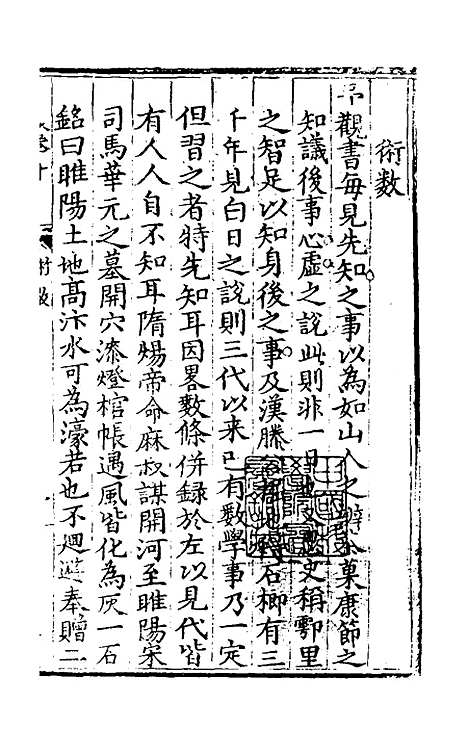 術數
予觀書每見先知之事以為如山人之 菓康節之
知議後事心虛之説此則非一日 史稱鄠里
之智足以知身後之事及漢滕 石槨有三
千年見白日之説則三代以来已有數學事乃一定
但習之者特先知耳因畧數條併録於左以見代皆
有人人自不知耳隋煬帝命麻叔謀開河至睢陽宋
司馬華元之墓開穴漆燈棺帳遇風皆化為灰一石
銘曰睢陽土地髙汴水可為濠若也不廻避奉贈二